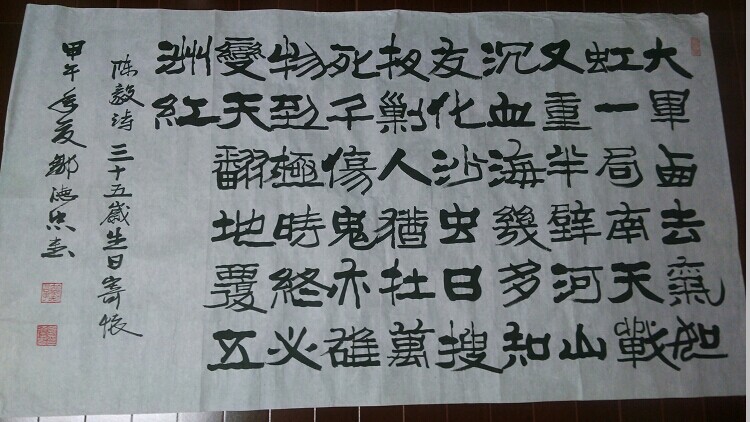 大軍西去氣如
虹一局南天戰
又重半壁河山
沉血海幾多知
友化沙虫日搜
夜剿人猶在萬
死千傷鬼亦雄
物到極時終必
變天翻地覆五
洲紅
陈毅诗三十五歲生日寄懷
甲午年夏鄒德忠書